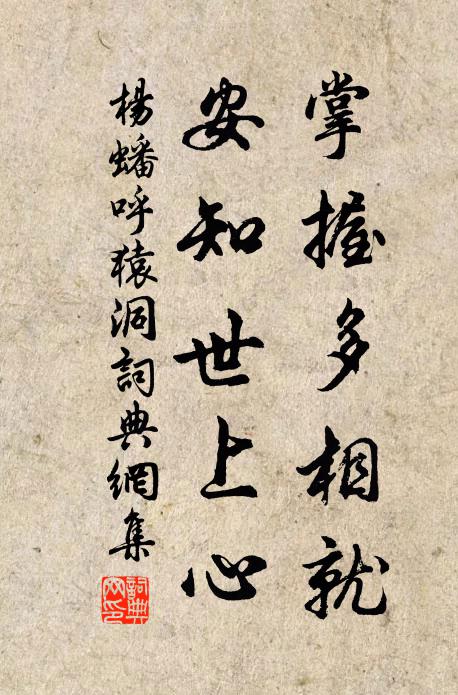 掌握多相就
安知世上心
楊蟠呼猿洞詞典網集
詞典
网印